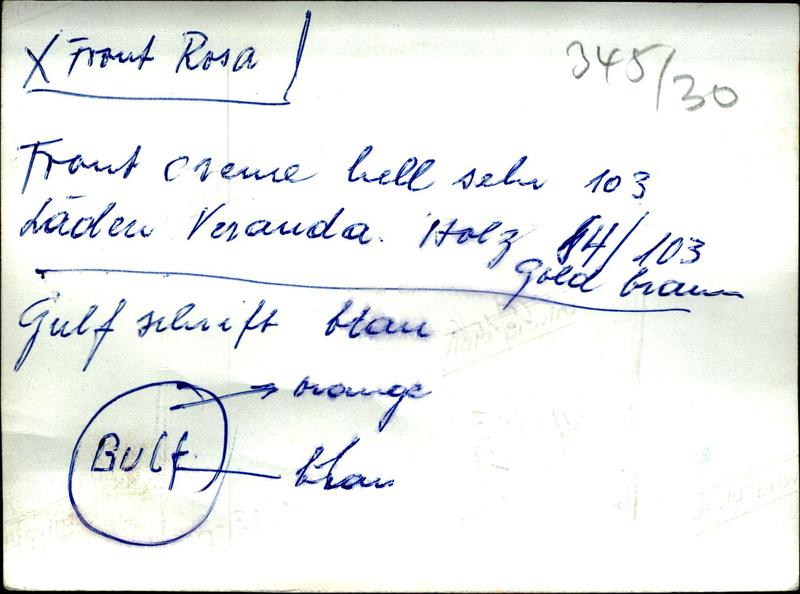 X Front Rosa
345/30
Front creme hell sehr 103
Läden Veranda. Holz 14/103
Gold braun
Gulf schrift blau
orange
GULF
blau